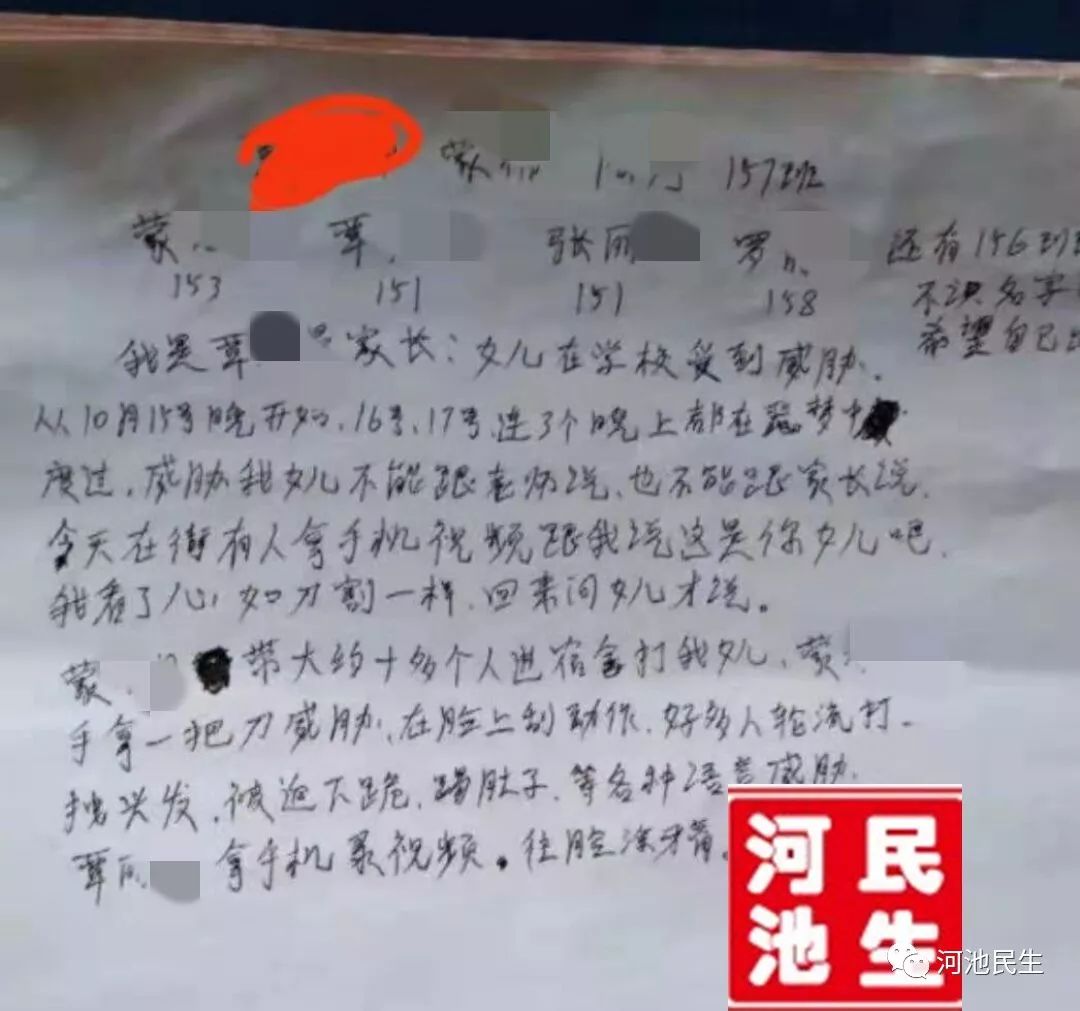 蒙 157班
蒙 覃 张丽 罗 还有156班
153 151 151 158 不识名字
希望自己
我是覃 家长：女儿在学校受到威胁.
从10月15号晚开始、16号、17号、连3个晚上都在恶梦中
度过，威胁我女儿不能跟老师说、也不能跟家长说.
今天在街有人拿手机视频跟我说这是你女儿吧.
我看了心如刀割一样、回来问女儿才说。
蒙 带大约十多个人进宿舍打我女儿、蒙
手拿一把刀威胁、在脸上刮动作、好多人轮流打、
拽头发、被迫下跪、踢肚子、等各种语言威胁.
覃 拿手机录视频。往脸涂牙膏.
河池民生
河池民生